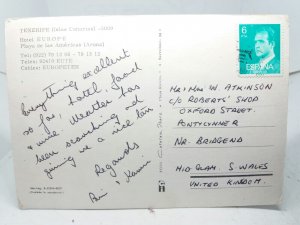 TENERIFE (Islas Canarias) -
Hotel EUROPE
Playa de las Américas (Arona)
Telex: 92025 EUTE
Cables: EUROPETEN
Everything excellent
so far, hotel, food
& wine. Weather has
been scorching and
giving us a nice tan
Regards
6
ESPAÑA
MR & MRS W. ATKINSON
C/O ROBERTS' SHOP
OXFORD STREET
PONTYCYMMER
NR. BRIDGEND
MID GLAM. S WALES
UNITED KINGDOM.